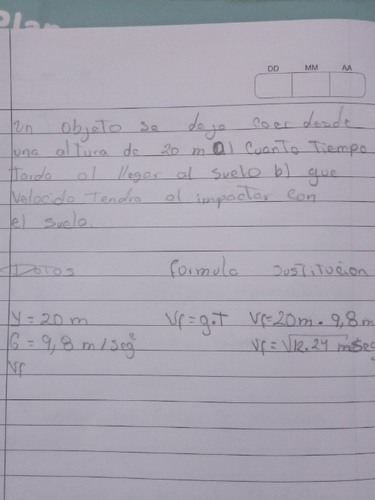 Plan
DD MM AA
Un objeto se deja caer desde
una altura de 20 m a) Cuanto Tiempo
Tarda al llegar al suelo b) que
Velocida Tendra al impactar con
el suelo.
Datos formula sustitución
Y = 20 m Vf = g.T Vf = 20m . 9,8 m
G = 9,8 m/seg² Vf = √12.24 m/seg
Vf